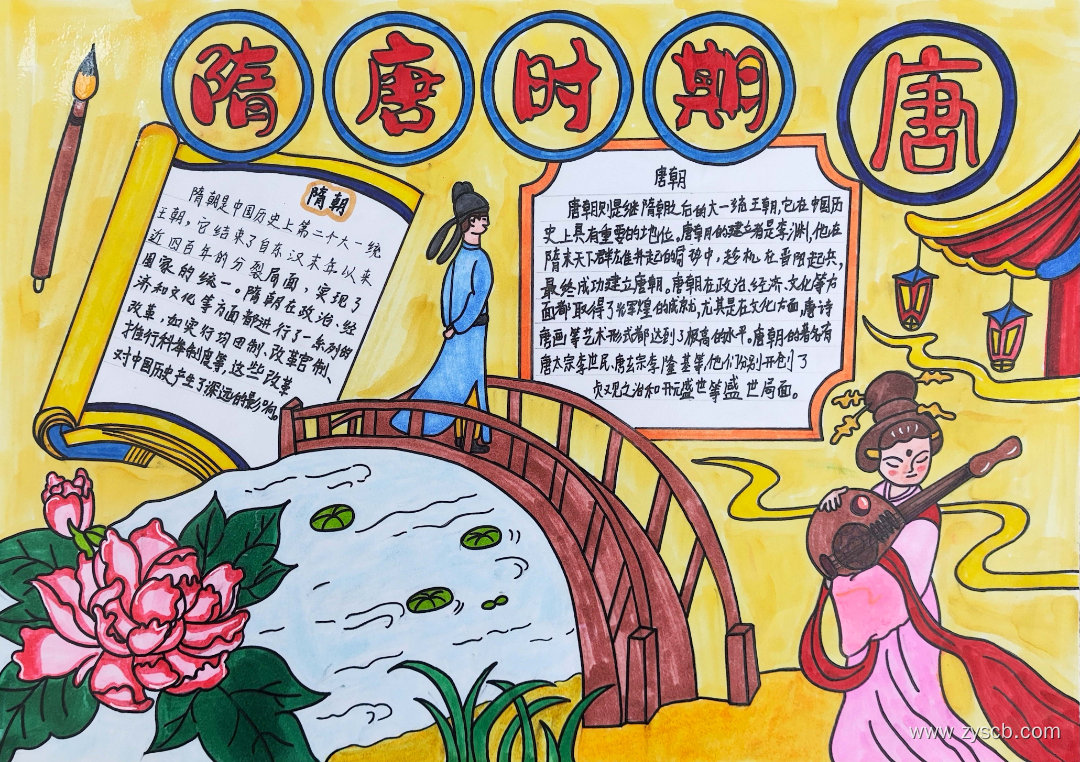 隋唐时期
唐
隋朝
隋朝是中国历史上第二个大一统
王朝，它结束了自东汉末年以来
近四百年的分裂局面，实现了
国家的统一。隋朝在政治、经
济和文化等方面都进行了一系列的
改革，如实行均田制、改革官制、
推行科举制度等，这些改革
对中国历史产生了深远的影响。
唐朝
唐朝则是继隋朝之后的大一统王朝，它在中国历
史上具有重要的地位。唐朝的建立者是李渊，他在
隋末天下群雄并起的局势中，趁机在晋阳起兵，
最终成功建立唐朝。唐朝在政治、经济、文化等方
面都取得了辉煌的成就，尤其是在文化方面，唐诗
唐画等艺术形式都达到了极高的水平。唐朝的著名有
唐太宗李世民、唐玄宗李隆基等，他们分别开创了
贞观之治和开元盛世等盛世局面。
www.zyscb.com